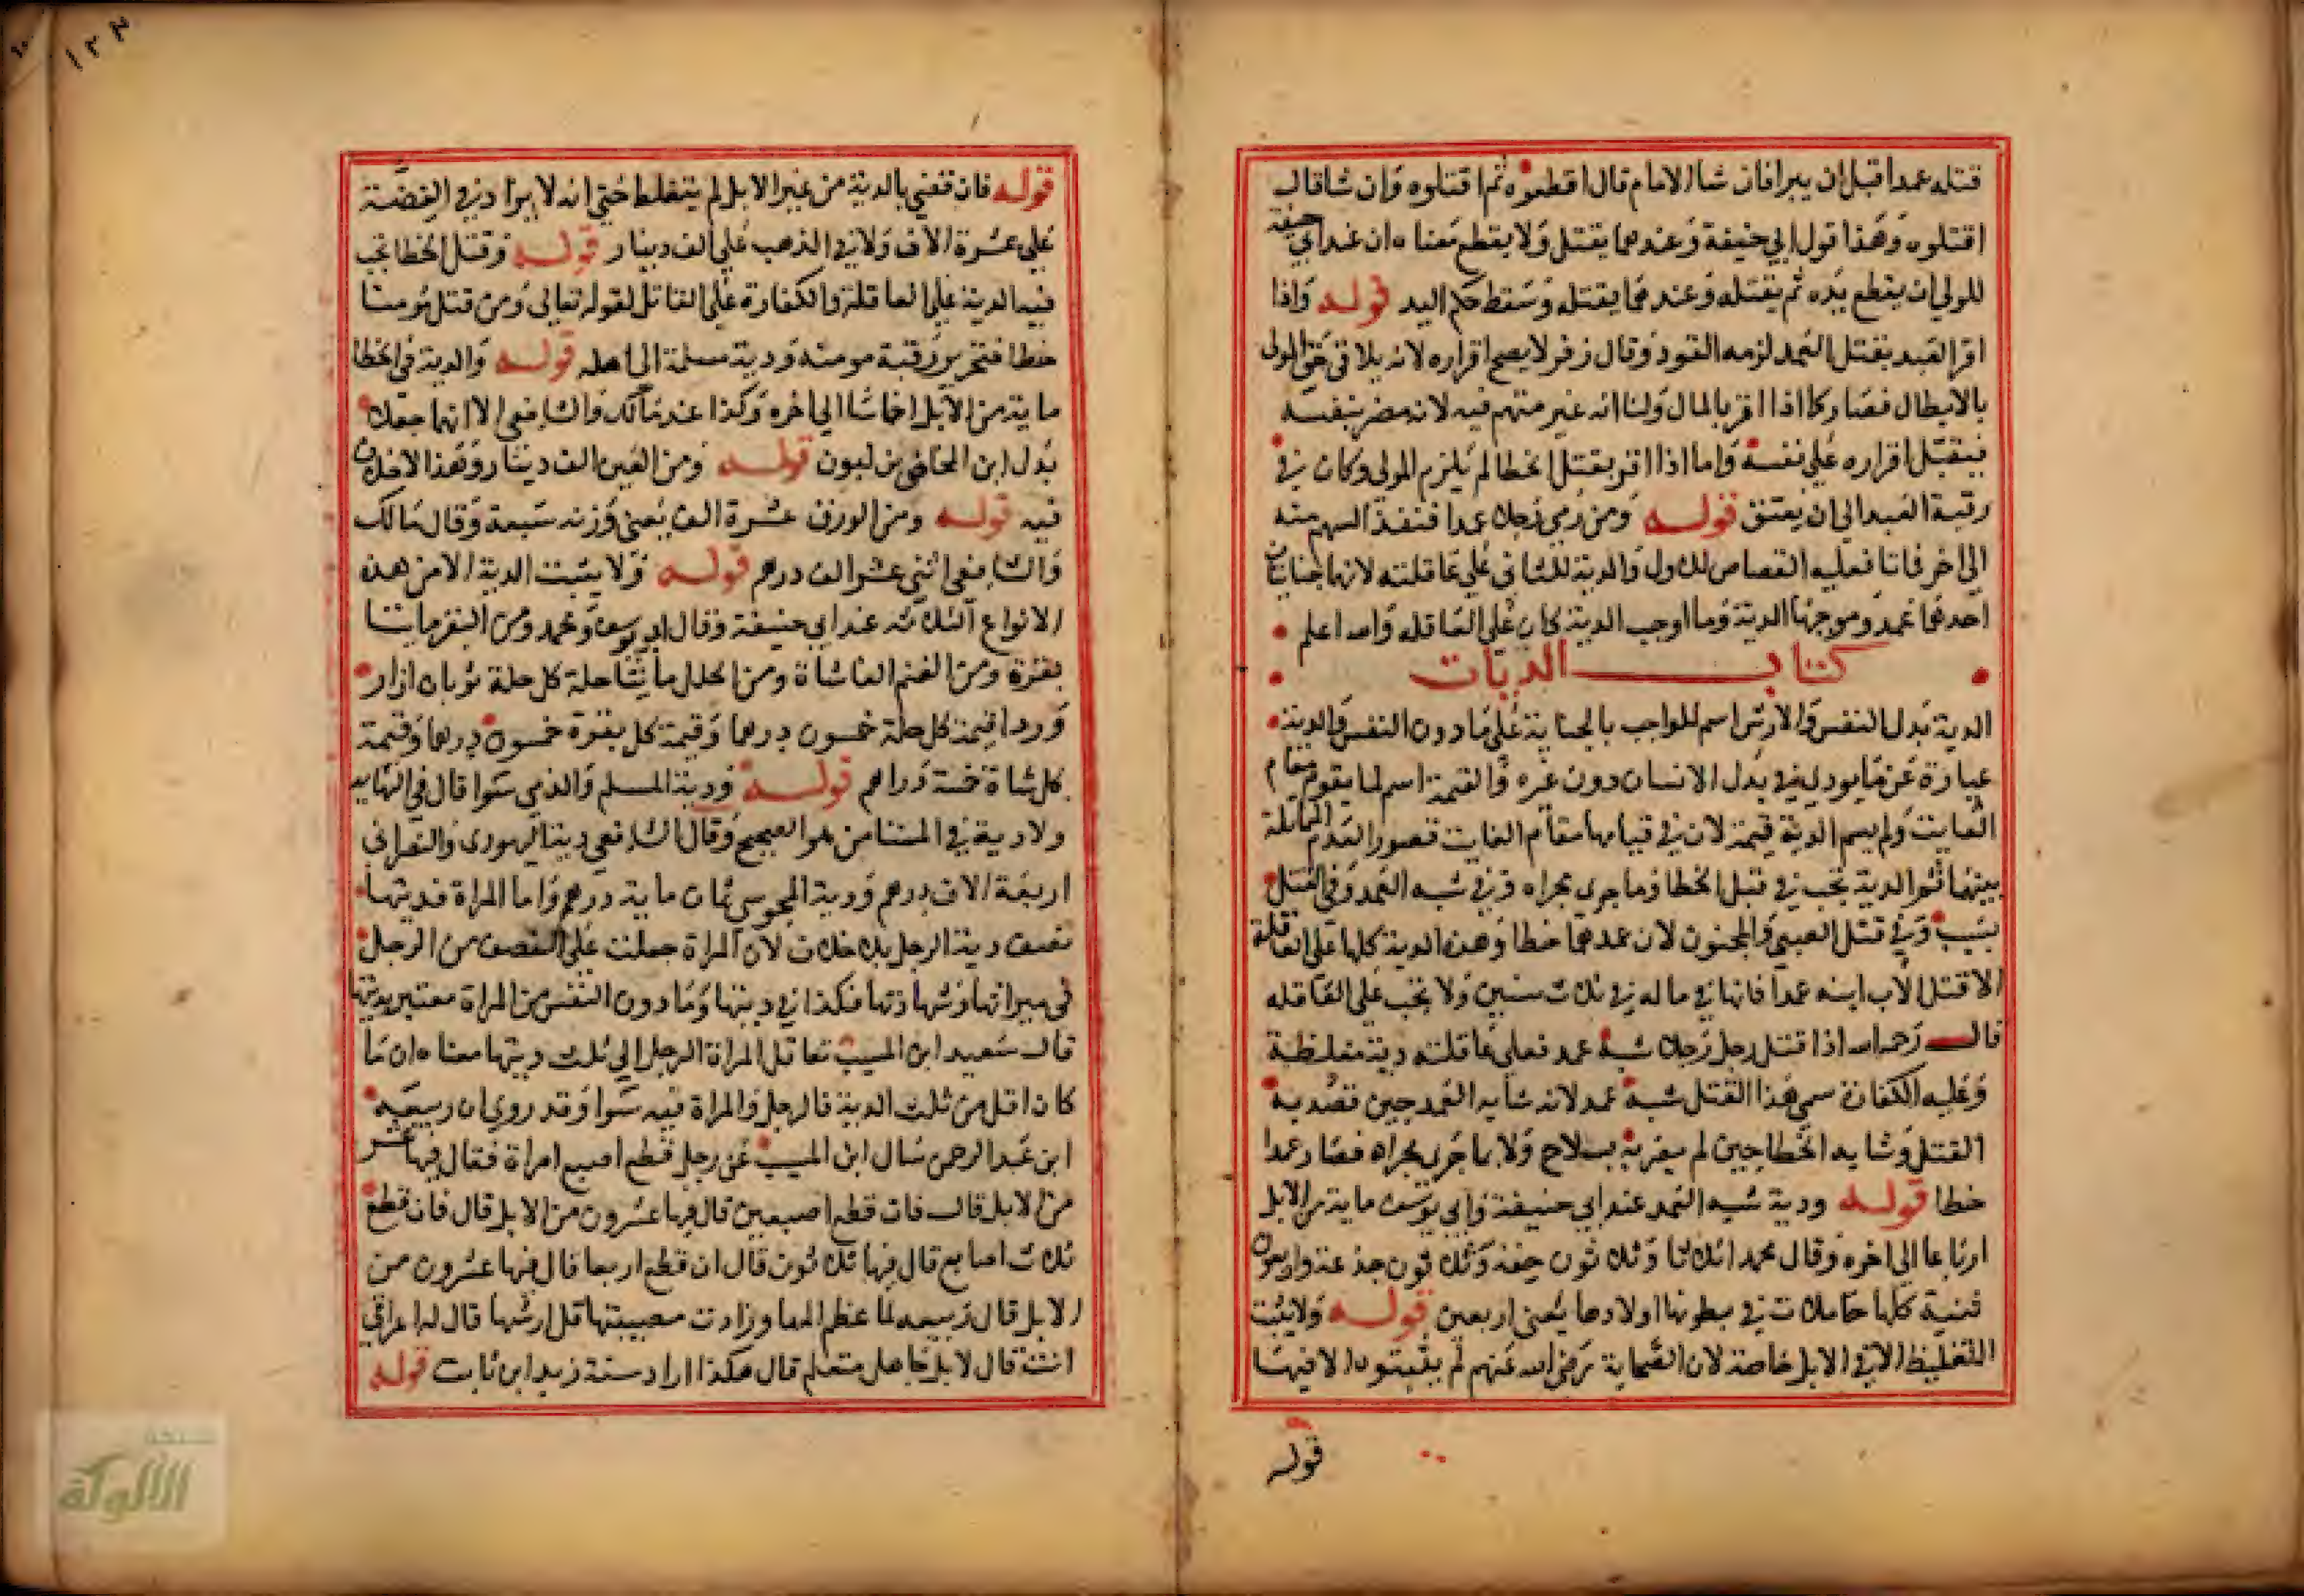 قتله عمدا قبل ان يبرا فان شا الامام قال اقطعوه ثم اقتلوه وان شا قال
اقتلوه وهذا قول ابي حنيفة وعندهما يقتل ولا يقطع معناه ان عند ابي حنيفة
للولي ان يقطع يده ثم يقتله وعندهما يقتله وسقط حكم اليد قوله واذا
اقر العبد بقتل العمد لزمه القود وقال زفر لا يصح اقراره لانه يلاقي حق المولى
بالابطال فصار كما اذا اقر بالمال ولنا انه غير متهم فيه لانه مضر بنفسه
فيقبل اقراره على نفسه واما اذا اقر بقتل الخطا لم يلزم المولى وكان في
رقبة العبد الى ان يعتق قوله ومن رمى رجلا عمدا فنفذ السهم منه
الى اخر فماتا فعليه القصاص للاول والدية للثاني على عاقلته لانها جنايتان
احدهما عمد وموجبها الدية وما اوجب الدية كان على العاقله والله اعلم
كتاب الديات
الدية بدل النفس والارش اسم للواجب بالجناية على ما دون النفس والدية
عبارة عن ما يودى في بدل الانسان دون غيره والقيمة اسم لما يقوم مقام
الفايت ولم يسم الدية قيمة لان في قيامها مقام الفايت قصور العدم المماثلة
بينهما ثم الدية تجب في قتل الخطا وما جرى مجراه وفي شبه العمد وفي القتل
بسبب وفي قتل الصبي والمجنون لان عمدهما خطا وهذه الدية كلها على العاقلة
الا قتل الاب ابنه عمدا فانها في ماله في ثلاث سنين ولا يجب على العاقله
قال رحمه الله اذا قتل رجل رجلا شبه عمد فعلى عاقلته دية مغلظية
وعليه الكفارة سمي هذا القتل شبه عمد لانه شابه العمد حين قصد به
القتل وشابه الخطا حين لم يضربه بسلاح ولا بما جرى مجراه فصار عمدا
خطا قوله ودية شبه العمد عند ابي حنيفة وابي يوسف ماية من الابل
ارباعا الى اخره وقال محمد اثلاثا وثلاثون حقة وثلاثون جذعة واربعون
ثنية كلها حاملات في بطونها اولادها يعني اربعين قوله ولا يثبت
التغليظ الا في الابل خاصة لان الصحابة رضي الله عنهم لم يثبتوه الا فيها
قوله
١٢٣
قوله فان قضي بالدية من غير الابل لم يتغلظ حتى انه لا يزاد في الفضة
على عشرة الاف ولا في الذهب على الف دينار قوله وقتل الخطا تجب
فيه الدية على العاقلة والكفارة على القاتل لقوله تعالى ومن قتل مومنا
خطا فتحرير رقبة مومنه ودية مسلمة الى اهله قوله والدية في الخطا
ماية من الابل اخماسا الى اخره وكذا عند مالك والشافعي الا انهما جعلا
بدل ابن المخاض بن لبون قوله ومن العين الف دينار وهذا لاخلاف
فيه قوله ومن الورق عشرة الف يعني وزنه سبعة وقال مالك
والشافعي اثني عشر الف درهم قوله ولا يثبت الدية الا من هذه
الانواع الثلاثه عند ابي حنيفة وقال ابو يوسف ومحمد ومن البقر مايتا
بقرة ومن الغنم الفا شاة ومن الحلل مايتا حلة كل حلة ثوبان ازار
وردا قيمة كل حلة خمسون درهما وقيمة كل بقرة خمسون درهما وقيمة
كل شاة خمسة دراهم قوله ودية المسلم والذمي سوا قال في النهايه
ولا دية في المستامن هو الصحيح وقال الشافعي دية اليهودى والنصراني
اربعة الاف درهم ودية المجوسي ثمان ماية درهم واما المراة فديتها
نصف دية الرجل بلا خلاف لان المراة جعلت على النصف من الرجل
في ميراثها وشهادتها فكذا في ديتها وما دون النفس من المراة معتبر بديتها
قال سعيد ابن المسيب تعاقل المراة الرجل الى ثلث ديتها معناه ان ما
كان اقل من ثلث الدية فالرجل والمراة فيه سوا وقد روي ان ربيعه
ابن عبد الرحمن سال ابن المسيب عن رجل قطع اصبع امراة فقال فيها عشر
من الابل قال فان قطع اصبعين قال فيها عشرون من الابل قال فان قطع
ثلاث اصابع قال فيها ثلاثون قال ان قطع اربعا قال فيها عشرون من
الابل قال ربيعه لما عظم المها وزادت مصيبتها قل ارشها قال له اعراقي
انت قال لا بل جاهل متعلم قال هكذا اراد سنة زيد ابن ثابت قوله
شبكة
الألوكة